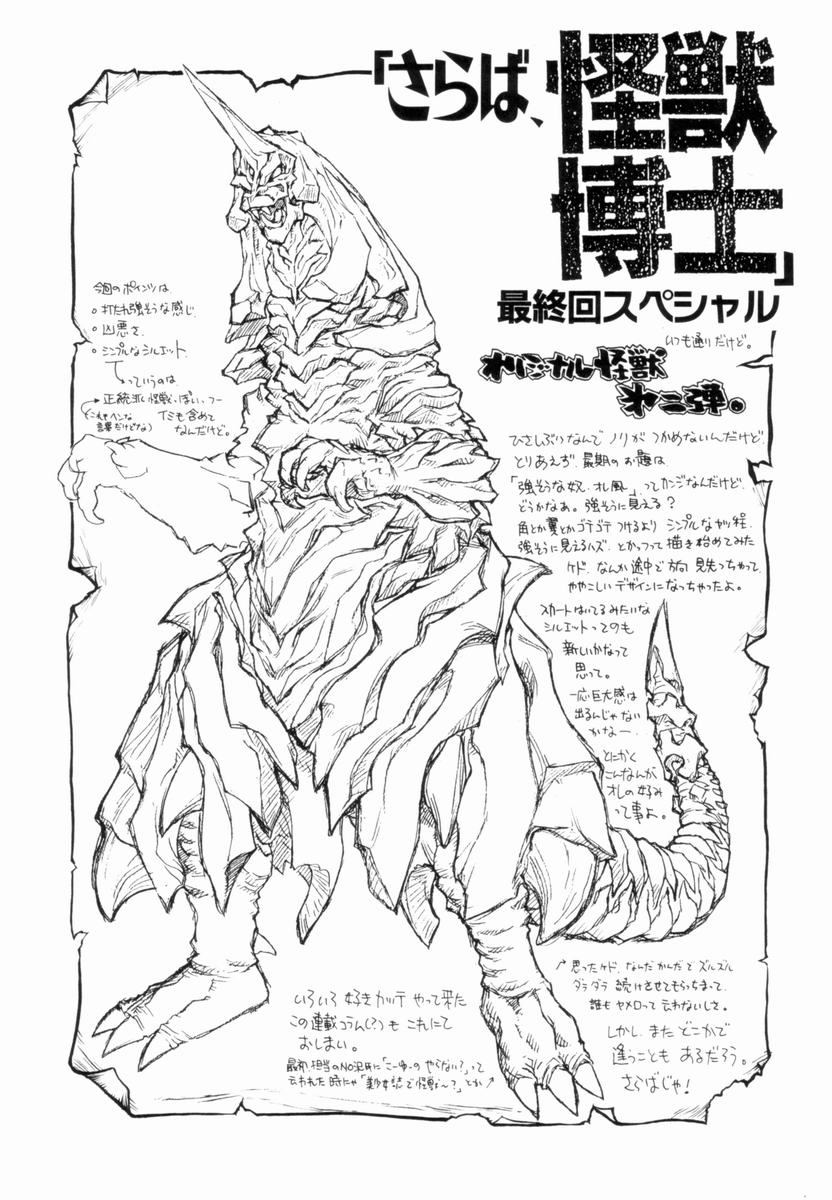 「さらば、
怪獣
博士」
最終回スペシャル
いつも通りだけど。
オリジナル怪獣
第二弾。
今回のポインツは
○打たれ強そうな感じ
○凶悪さ
○シンプルなシルエット
っていうのは
→正統派怪獣っぽい、つー
イミも含めて
なんだけど。
(これもヘンな
言葉だけどな)
ひさしぶりなんでノリがつかめないんだけど、
とりあえず最期のお題は、
「強そうな奴、オレ風」ってカンジなんだけど、
どうかなあ。強そうに見える?
角とか翼とかゴテゴテつけるよりシンプルなヤツ程、
強そうに見えるハズ、とかっつって描き始めてみた
ケド、なんか途中で方向見失っちゃって、
ややこしいデザインになっちゃったよ。
スカートはいてるみたいな
シルエットってのも
新しいかなって
思って。
一応巨大感は
出るんじゃない
かなー。
とにかく
こんなんが
オレの好み
って事よ。
いろいろ好きカッテやって来た
この連載コラム(?)もこれにて
おしまい。
最初、担当のNO沢氏に「こーゆーのやらない?」って
云われた時にゃ「美少女誌で怪獣ぅ〜?」とか↗
↗思ったケド、なんだかんだでズルズル
ダラダラ続けさせてもらっちまって、
誰もヤメロって云わないしさ。
しかし、またどこかで
逢うこともあるだろう。
さらばじゃ!